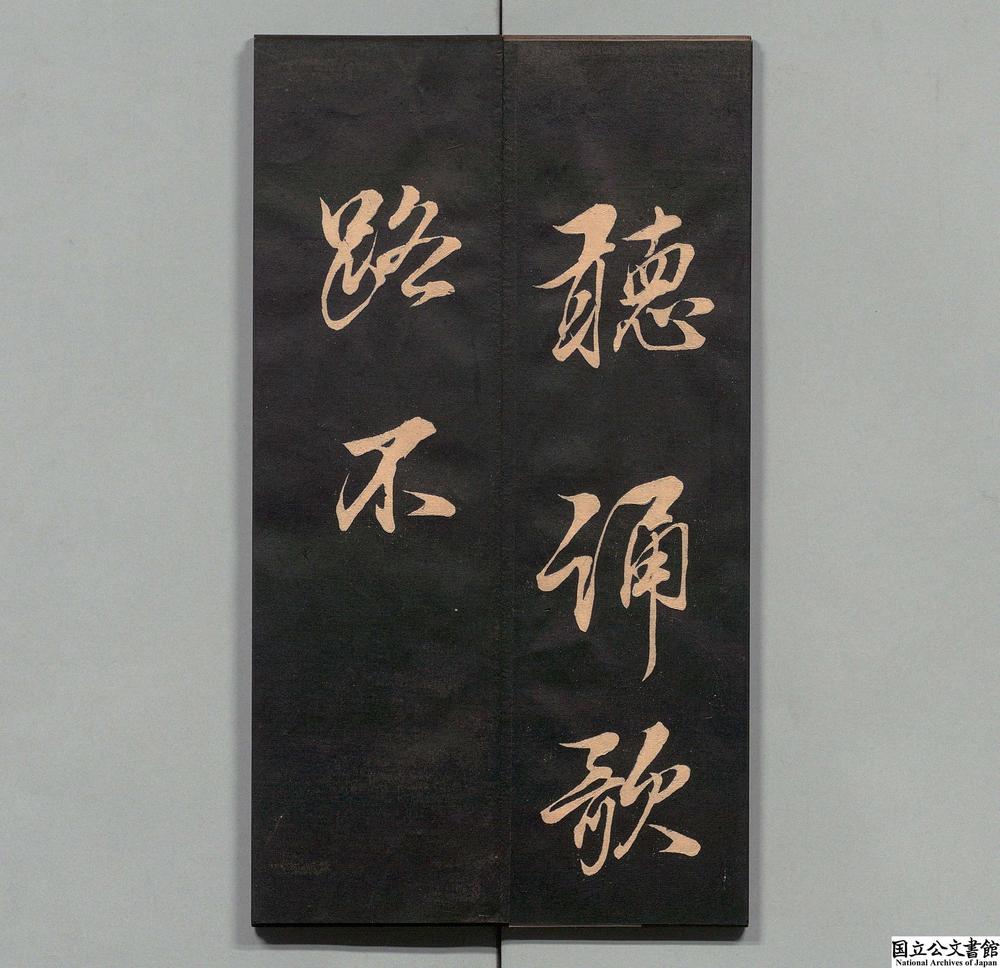 聽誦歌
路不
国立公文書館
National Archives of Japan